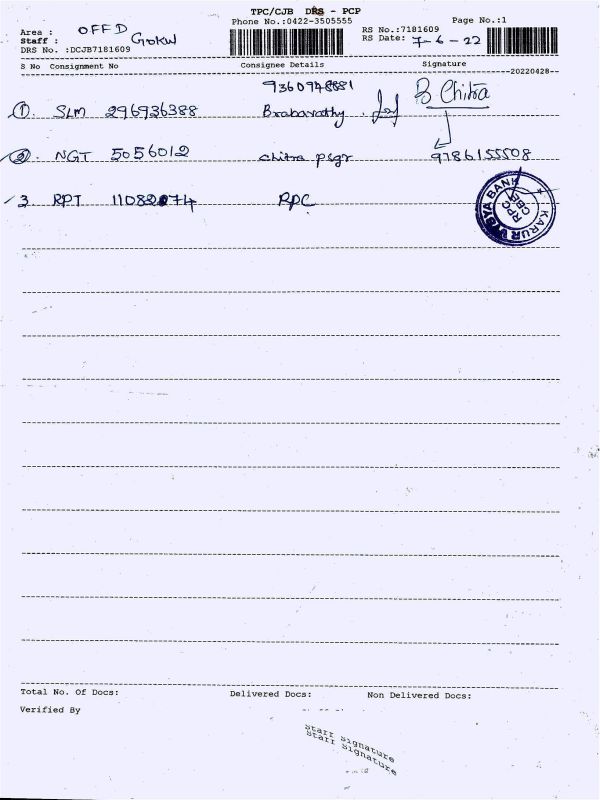 TPC/CJB DRS - PCP
Phone No.:0422-3505555 Page No.:1
Area : OFFD
Staff : Gokul
RS No.:7181609
RS Date: 7-6-22
DRS No. :DCJB7181609
S No Consignment No Consignee Details Signature
20220428
9360948881
1. SLM 296936388 Brabavathy B Chitra
2. NGT 5056012 chitra psgr 9786155508
3 RPT 11082074 RPC
KARUR VYSYA BANK
RPC
CBE
Total No. Of Docs: Delivered Docs: Non Delivered Docs:
Verified By
Staff Signature
Staff Signature